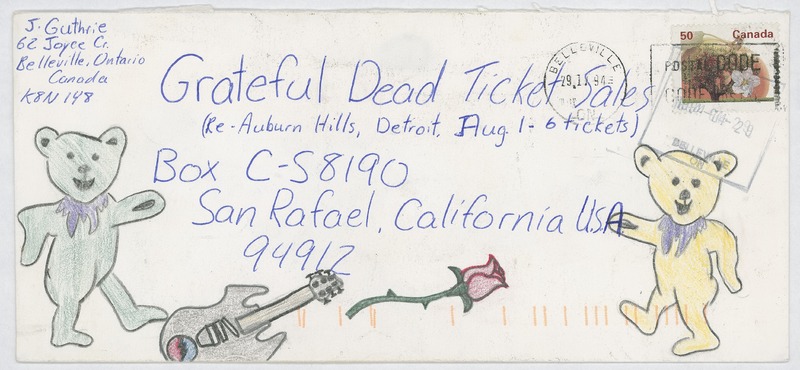 J. Guthrie
62 Joyce Cr.
Belleville, Ontario
Canada
K8N 1Y8
50 Canada
BELLEVILLE
ON
POSTAL CODE
Grateful Dead Ticket Sales
(Re - Auburn Hills, Detroit, Aug. 1 - 6 tickets)
Box C-S8190
San Rafael, California U.S.A.
94912
BELLEVILLE
ON